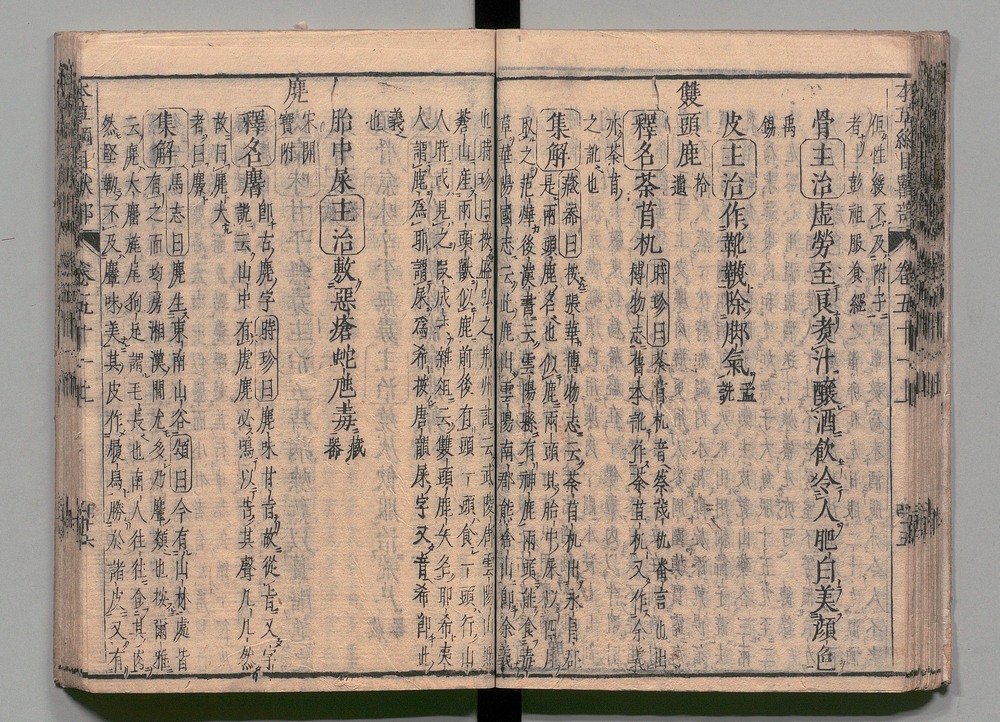 但性緩不及附子
者彭祖服食經
骨主治虛勞至良煮汁釀酒飲令人肥白美顏色
禹錫
皮主治作靴韈除脚氣孟詵
雙頭鹿拾遺
釋名茶苜机時珍曰茶苜机音蔡茂机番言也出
博物志舊本訛作茶苜机又作余義
亦茶苜
之訛也
集解藏器曰按張華博物志云茶苜机出永昌郡
是兩頭鹿名也似鹿兩頭其胎中屎以四月
取之范曄後漢書云雲陽縣有神鹿兩頭能食毒
草華陽國志云此鹿出雲陽南郡熊倉山即余義
也時珍曰按盛弘之荊州記云武陵郡雲陽山點
蒼山產兩頭獸似鹿前後有頭一頭食一頭行山
人時或見之段成式雜俎云雙頭鹿矢名耶希夷
人謂鹿為耶謂屎為希按唐韻屎字又音希即此
義
也
胎中屎主治敷惡瘡蛇虺毒藏器
麂
宋開
寶附
釋名麕即古麂字時珍曰麂味甘旨故從旨又字
說云山中有虎麂必鳴以告其聲几几然
故曰麂大
者曰麖
集解馬志曰麂生東南山谷頌曰今有山林處皆
有之而均房湘漢間尤多乃麞類也按爾雅
云麂大麕旄尾狗足謂毛長也南人往往食其肉
然堅韌不及麞味美其皮作履舄勝於諸皮又有